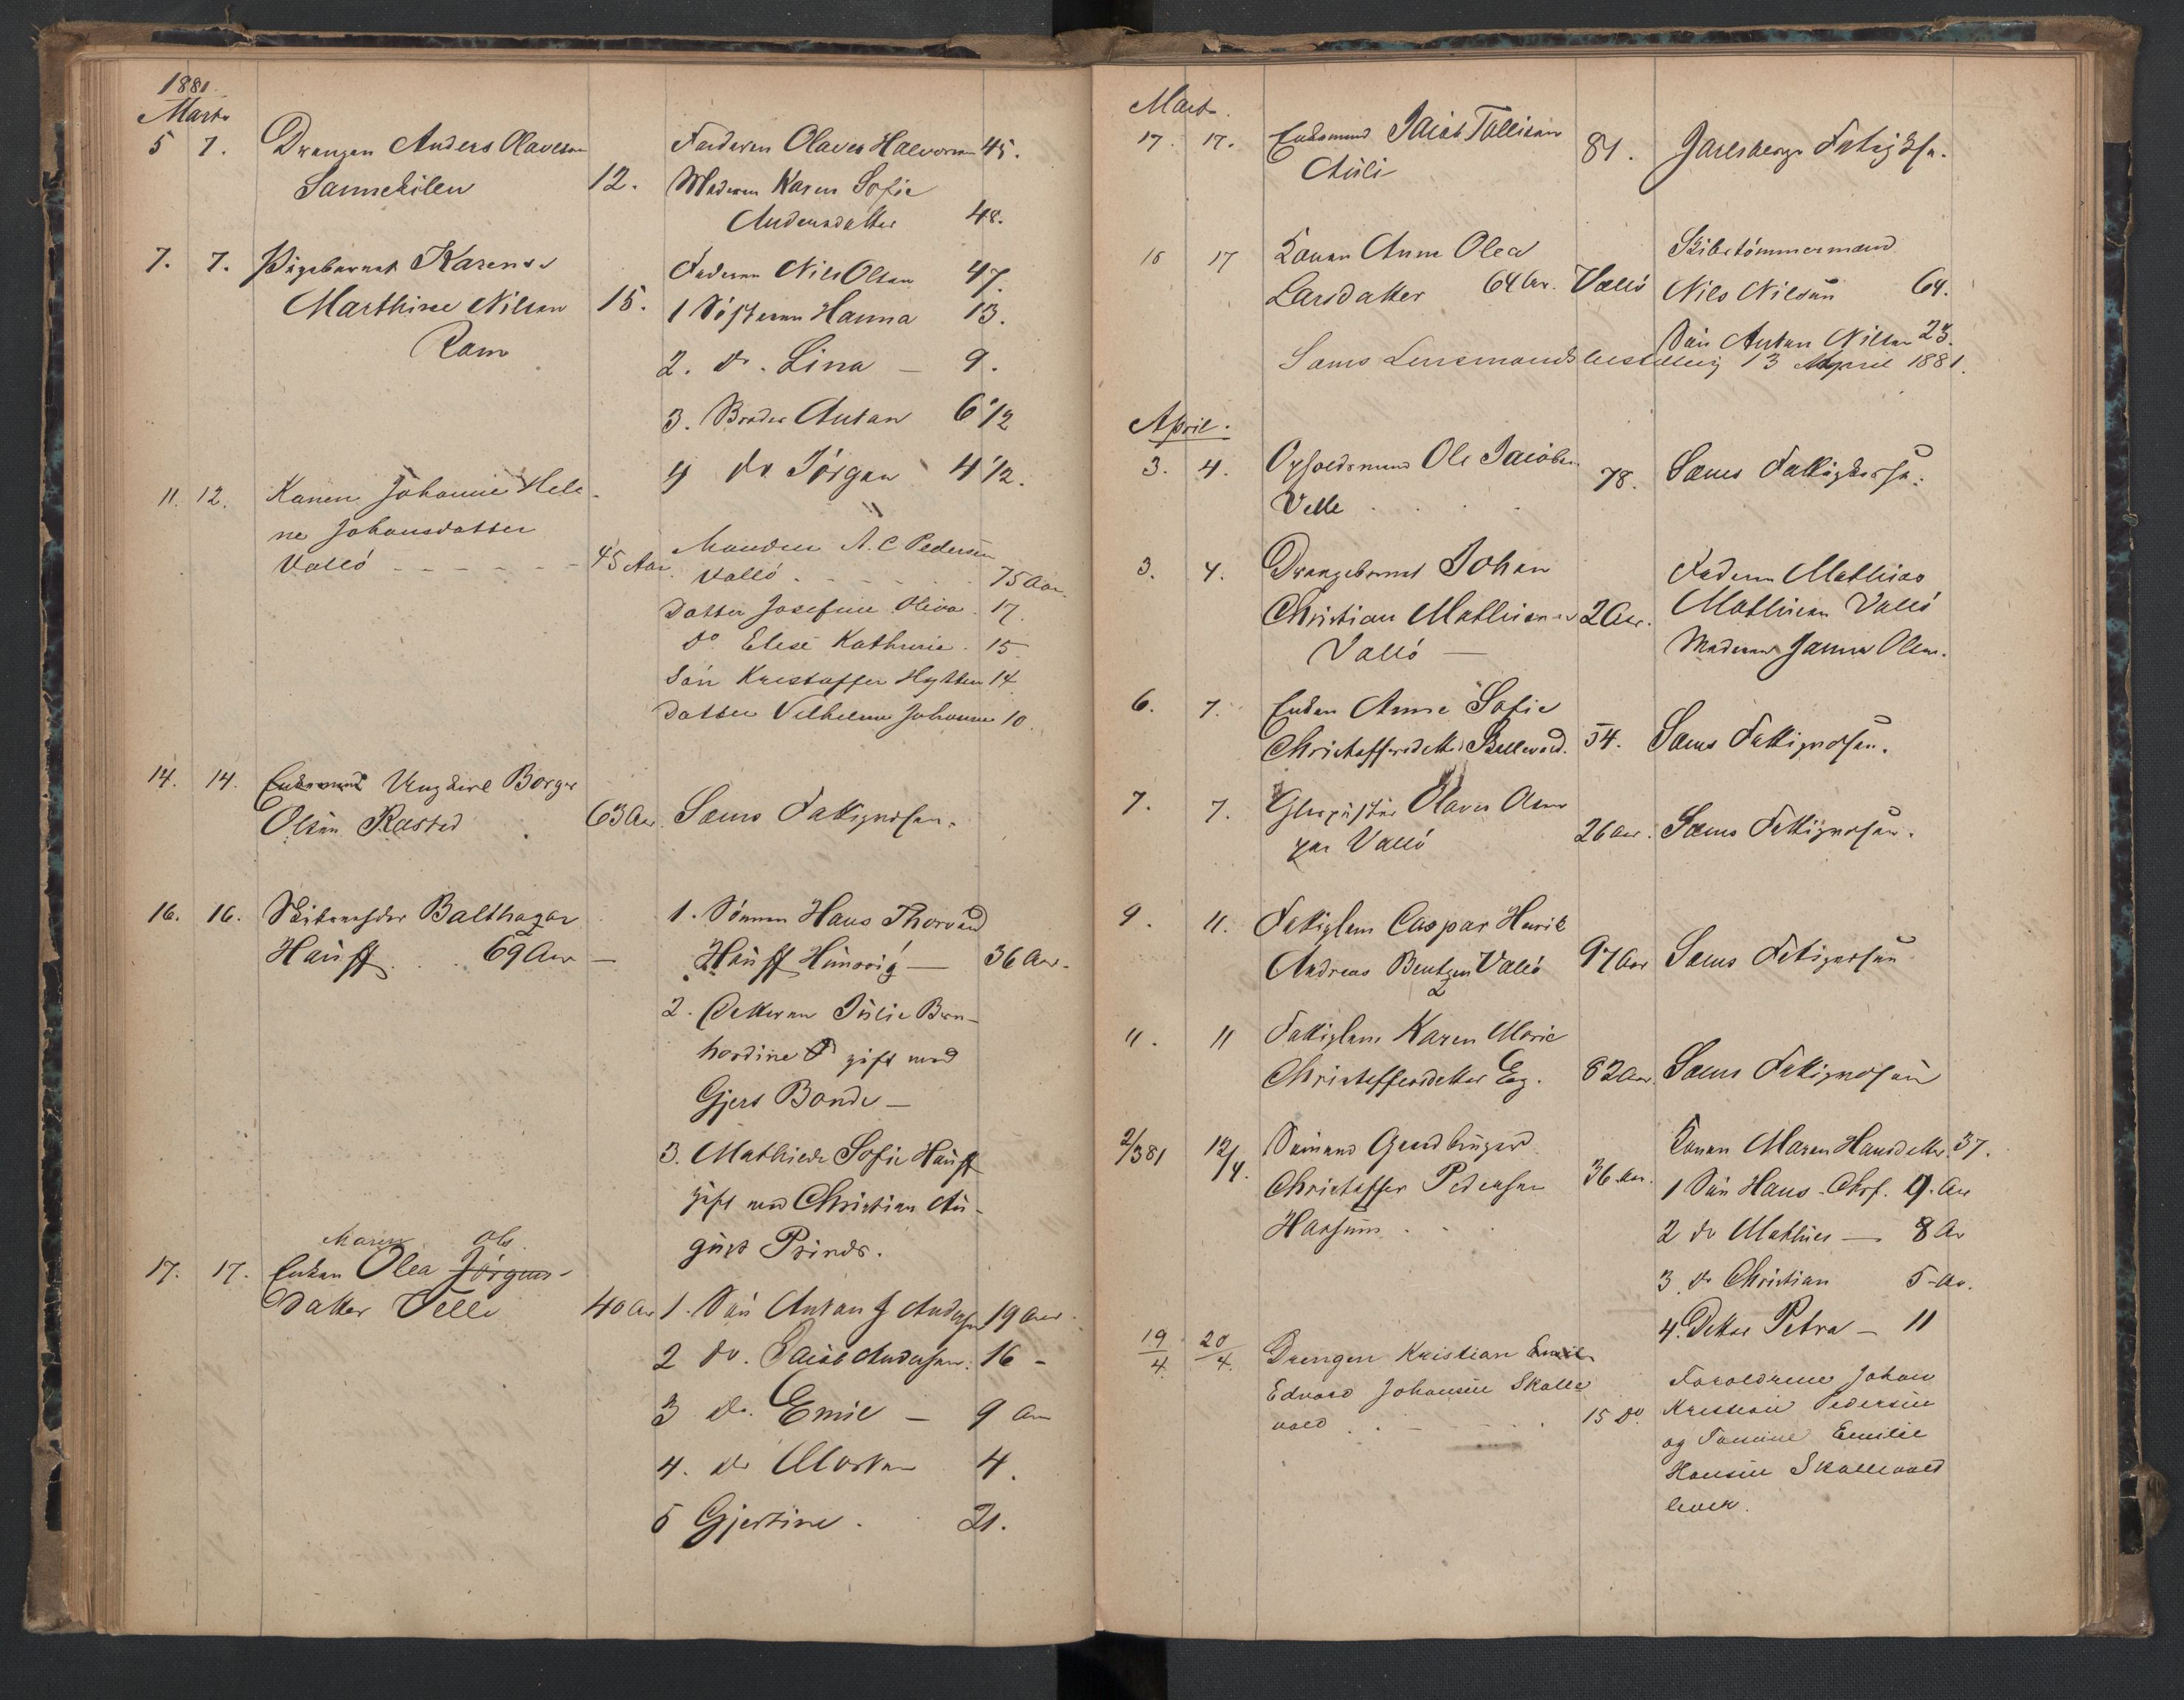 1881.
Marts
5 7. Drengen Anders Olavesen
Sannekilen 12.
Faderen Olaves Halvorsen 45.
Moderen Karen Sofie
Andersdatter 48.
7. 7. Pigebarnet Karen
Marthine Nilsen 15.
Ram
Faderen Nils Olsen 47.
1 Søsteren Hanna 13.
2. do. Lina — 9.
3. Broder Anton 6 1/2
4 do Jørgen 4 1/2.
11. 12. Konen Johanne Hele-
ne Johansdatter
Valló - - - - - - 45 Aar.
Manden A. C Pedersen
Valló . - - - - . 75 Aar.
Datter Josefine Oliva. 17.
do Elise Kathrine. 15
Søn Kristoffer Hytten 14.
Datter Vilhelmine Johanne 10.
14. 14. Ungkarl Borger
Olsen Rastad . 63 Aar.
Sæms Fattigvæsen.
16. 16. Balthazar
Hauff . . . 69 Aar —
1. Sønnen Hans Thorvald
Hauff — 36 Aar.
2. Datteren Julie Bern-
hardine gift med
Gjert Bonde —
3. Mathilde Sofie Hauff
gift med Christian Au-
gust Prinds.
Maren Ols
17. 17. Enken Olea Jörgens-
datter Velle 40 Aar
1. Søn Anton J Andersen 19 Aar.
2 do. Jacob Andersen. 16 -
3 do. Emil — 9 Aar
4. do Morten 4.
5 Gjertine . 21.
Marts.
17. 17. Enkemand Jacob Tollesen
Auli 81. Jarlsbergs Fattigks.
16 17 Konen Anne Olea
Larsdatter 64 Aar. Valló
Skibstømmermand
Nils Nilsen 64.
Søn Anton Nilsen 23.
Sæms Lensmandsbestilling 13 April 1881.
April.
3. 4. Opholdsmand Ole Jacobsen
Velle . . . . 78. Sæms Fattigkasse.
3. 4. Drengebarnet Johan
Christian Mathisen 2 Aar.
Valló —
Faderen Mathias
Mathisen Valló
Moderen Janna Olsen.
6. 7. Enken Anne Sofie
Christoffersdatter Skallevold. 54. Sæms Fattigvæsen.
7. 7. Glaspuster Olaves Olsen
paa Valló 26 Aar. Sæms Fattigvæsen.
9. 11. Fattiglem Caspar Henrik
Andreas Bentzen Valló 97 Aar Sæms Fattigvæsen
11. 11 Fattiglem Karen Marie
Christoffersdatter Eeg. 82 Aar. Sæms Fattigvæsen
2/3 81 12/4. Sømand Gaardbruger
Christoffer Pedersen 36 Aar.
Horsum . . .
Konen Maren Hansdatter 37.
1 Søn Hans Chrf. 9. Aar
2 do Mathias — 8 Aar
3. do Christian 5 - Aar.
4. Datter Petra — 11
19/4. 20/4. Drengen Kristian Emil
Edvard Johansen Skalle
vold . . - - - . 15 do.
Forældrene Johan
Kristian Pedersen
og Emilie
Hansen Skallevold
lever.